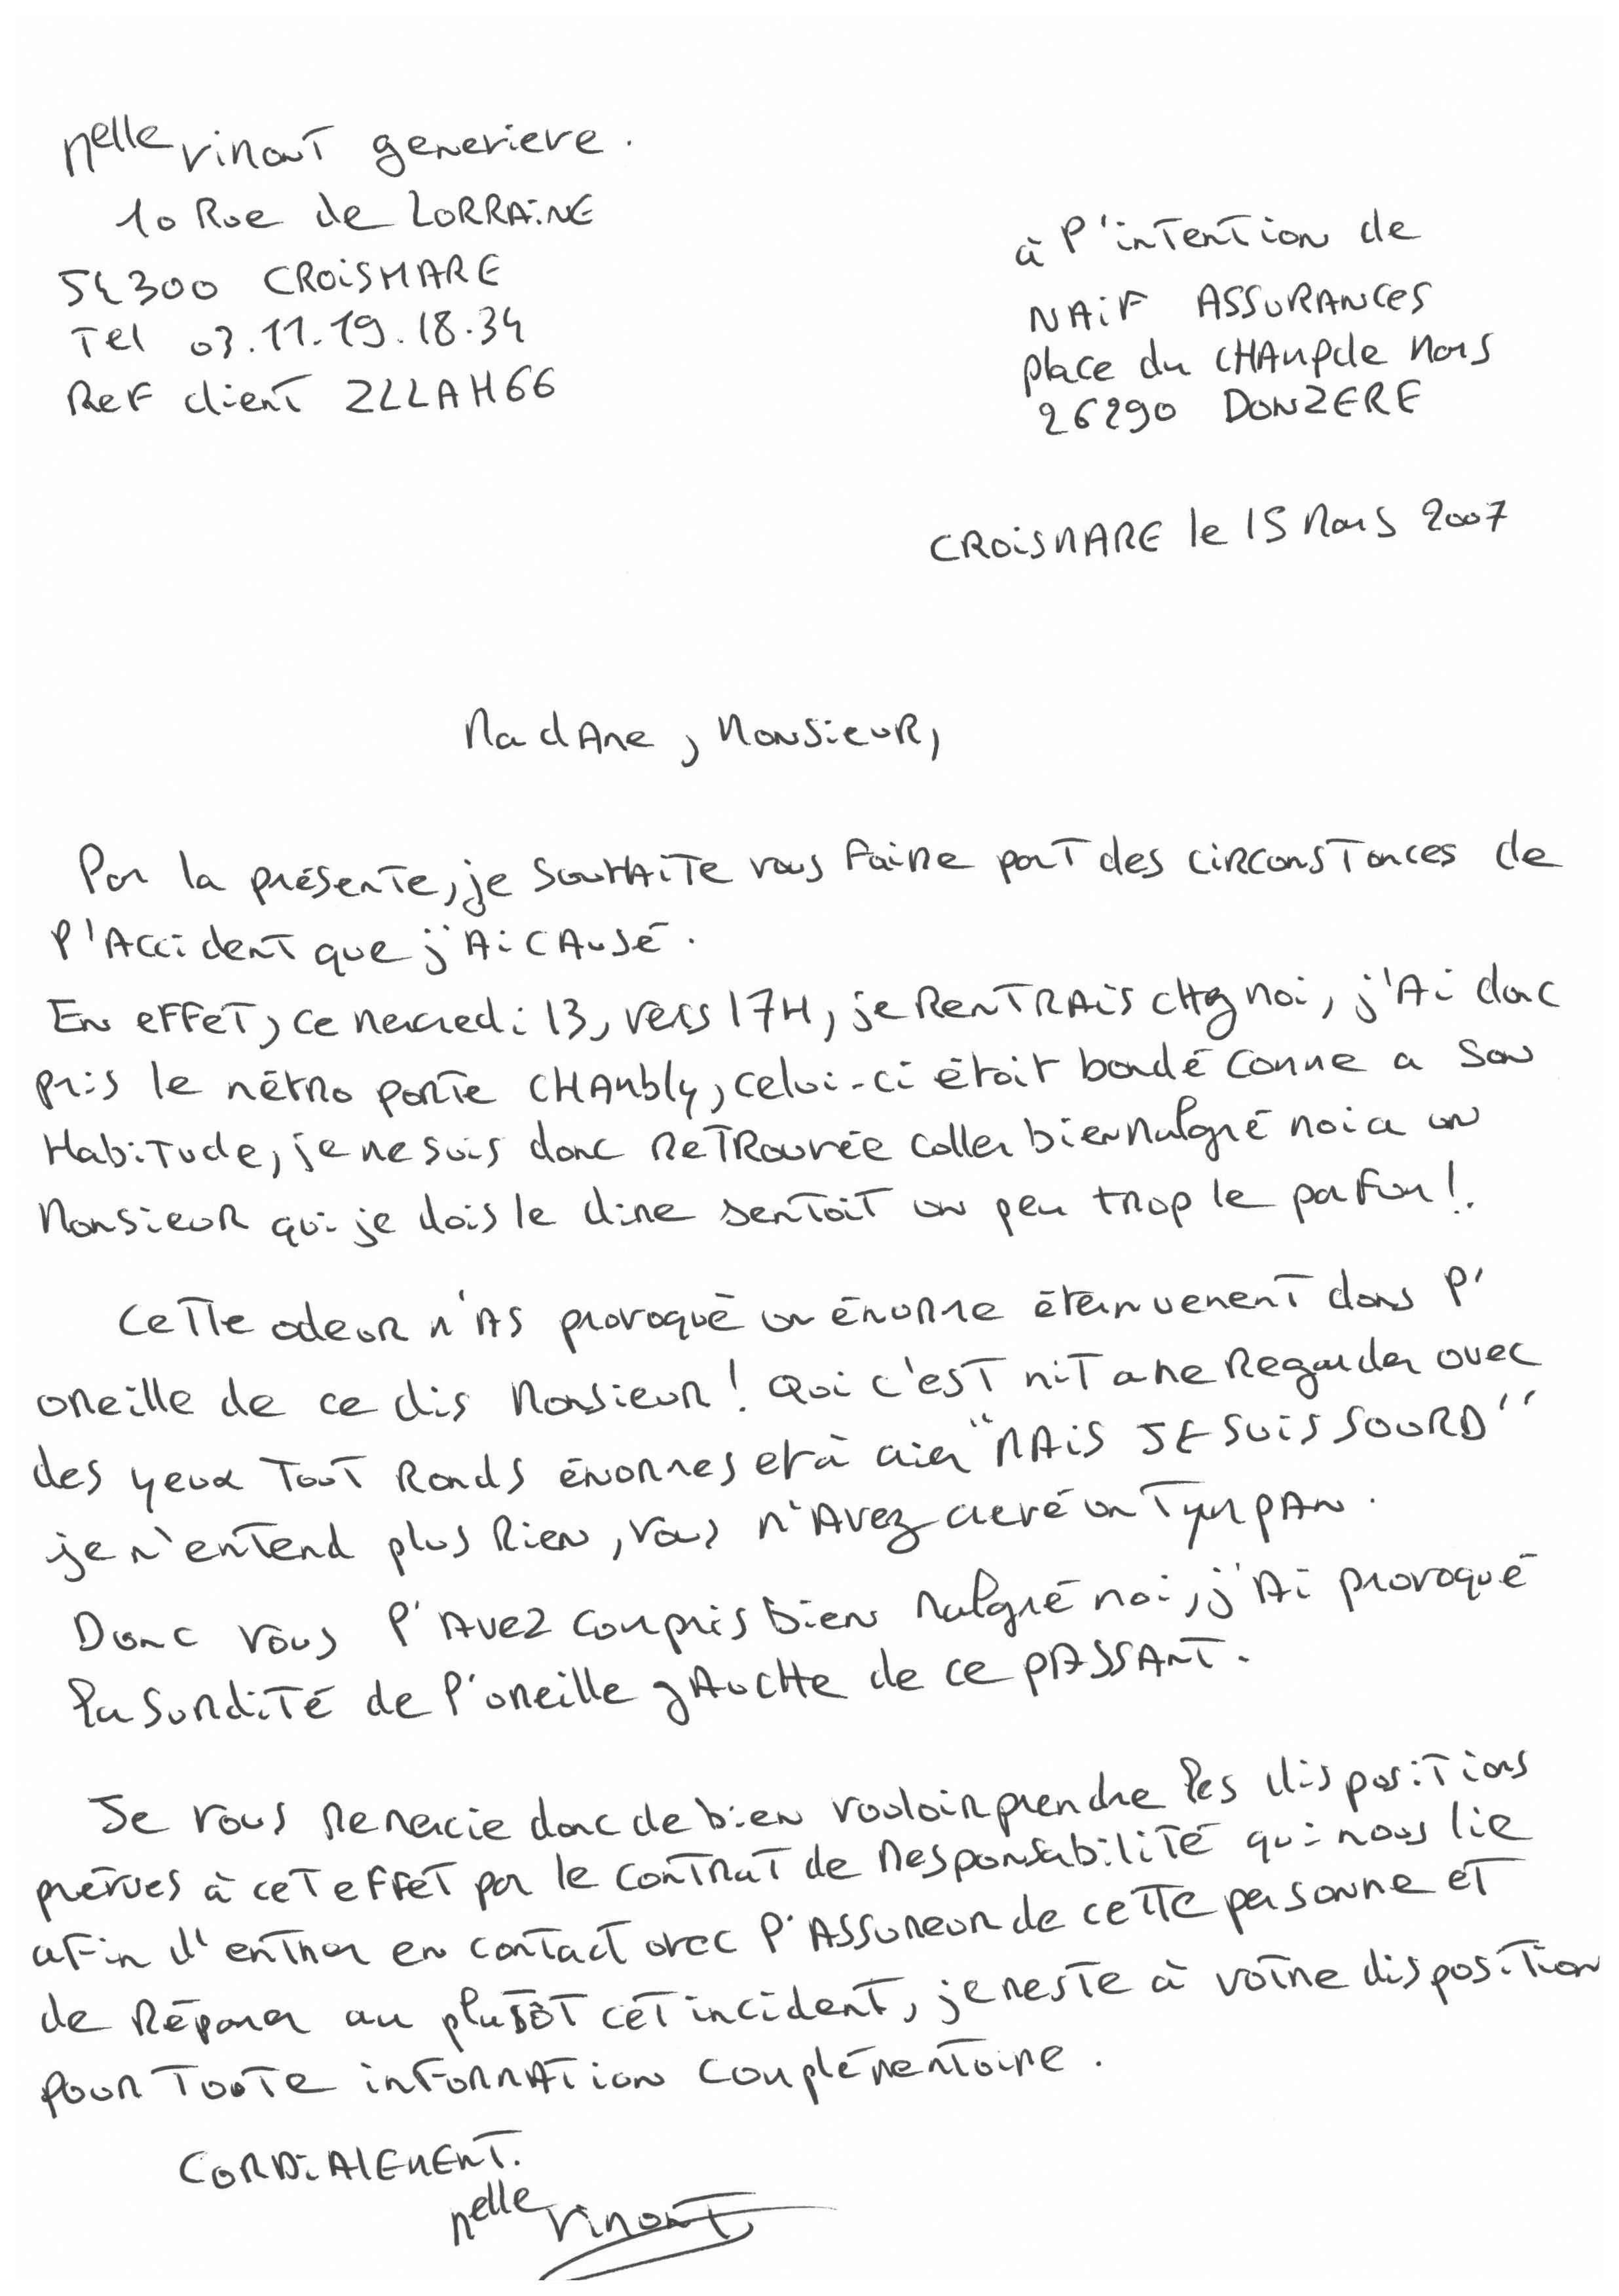 Melle Vinont Genevieve.
10 Rue de LORRAINE
54300 CROISMARE
Tel 03.11.19.18.34
Ref client ZLLAH66
à l'intention de
NAIF ASSURANCES
place du CHAMP de Mars
26290 DONZERE
CROISMARE le 15 Mars 2007
Madame, Monsieur,
Par la présente, je souhaite vous faire part des circonstances de
l'accident que j'ai causé.
En effet, ce mercredi 13, vers 17H, je rentrais chez moi, j'ai donc
pris le métro porte CHAMbly, celui-ci était bondé comme a son
habitude, je me suis donc retrouvée coller bien malgré moi a un
Monsieur qui je dois le dire sentait un peu trop le parfum!.
Cette odeur m'as provoqué un énorme éternuement dans l'
oreille de ce dis Monsieur! Qui c'est mit a me regarder avec
des yeux tout ronds énormes et à crier "MAIS JE SUIS SOURD"
je n'entend plus rien, vous m'avez crevé un tympan.
Donc vous l'avez compris bien malgré moi, j'ai provoqué
la surdité de l'oreille gauche de ce passant.
Je vous remercie donc de bien vouloir prendre les dispositions
prévues à cet effet par le contrat de responsabilité qui nous lie
afin d'entrer en contact avec l'assureur de cette personne et
de réparer au plutôt cet incident, je reste à votre disposition
pour toute information complémentaire.
CORDIALEMENT.
Melle Vinont